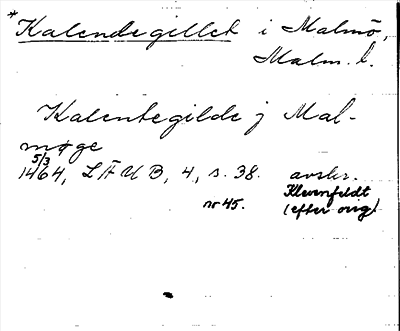 *Kalendegillet i Malmö,
Malm. l.
Kalentegilde j Mal-
møge
5/3
1464, LÆUB, 4, s. 38. avskr.
Klevenfeldt
nr 45. (efter orig)